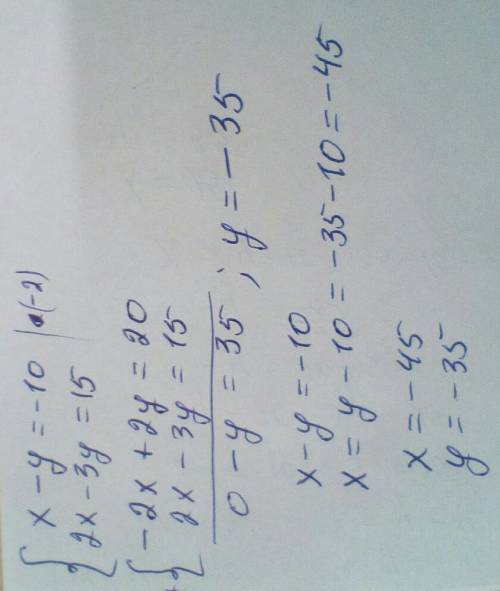 { x - y = -10 | · (-2)
2x - 3y = 15
{ -2x + 2y = 20
2x - 3y = 15
0 - y = 35 ; y = -35
x - y = -10
x = y - 10 = -35 - 10 = -45
x = -45
y = -35